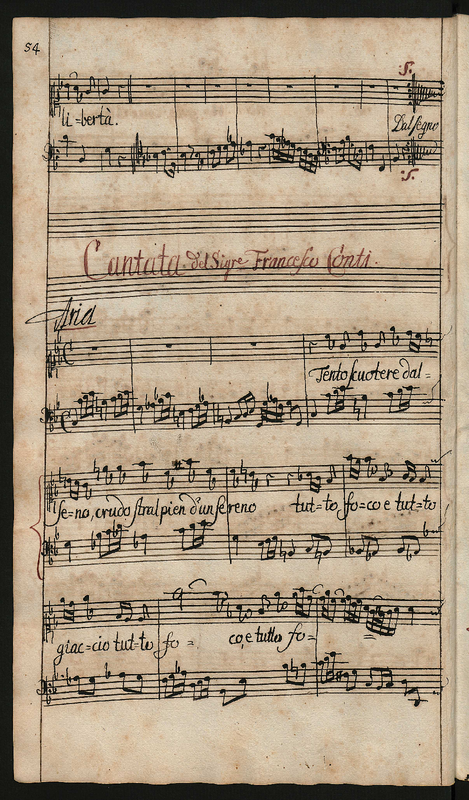 54
.S.
li=bertà.
Dal segno
.S.
Cantata. del Sigre Francesco Conti.
Aria
Tento scuotere dal=
se=no, crudo stral pien d'un sereno tut=to fo=co e tut=to
giac=cio tut=to fo= co, e tutto fo=